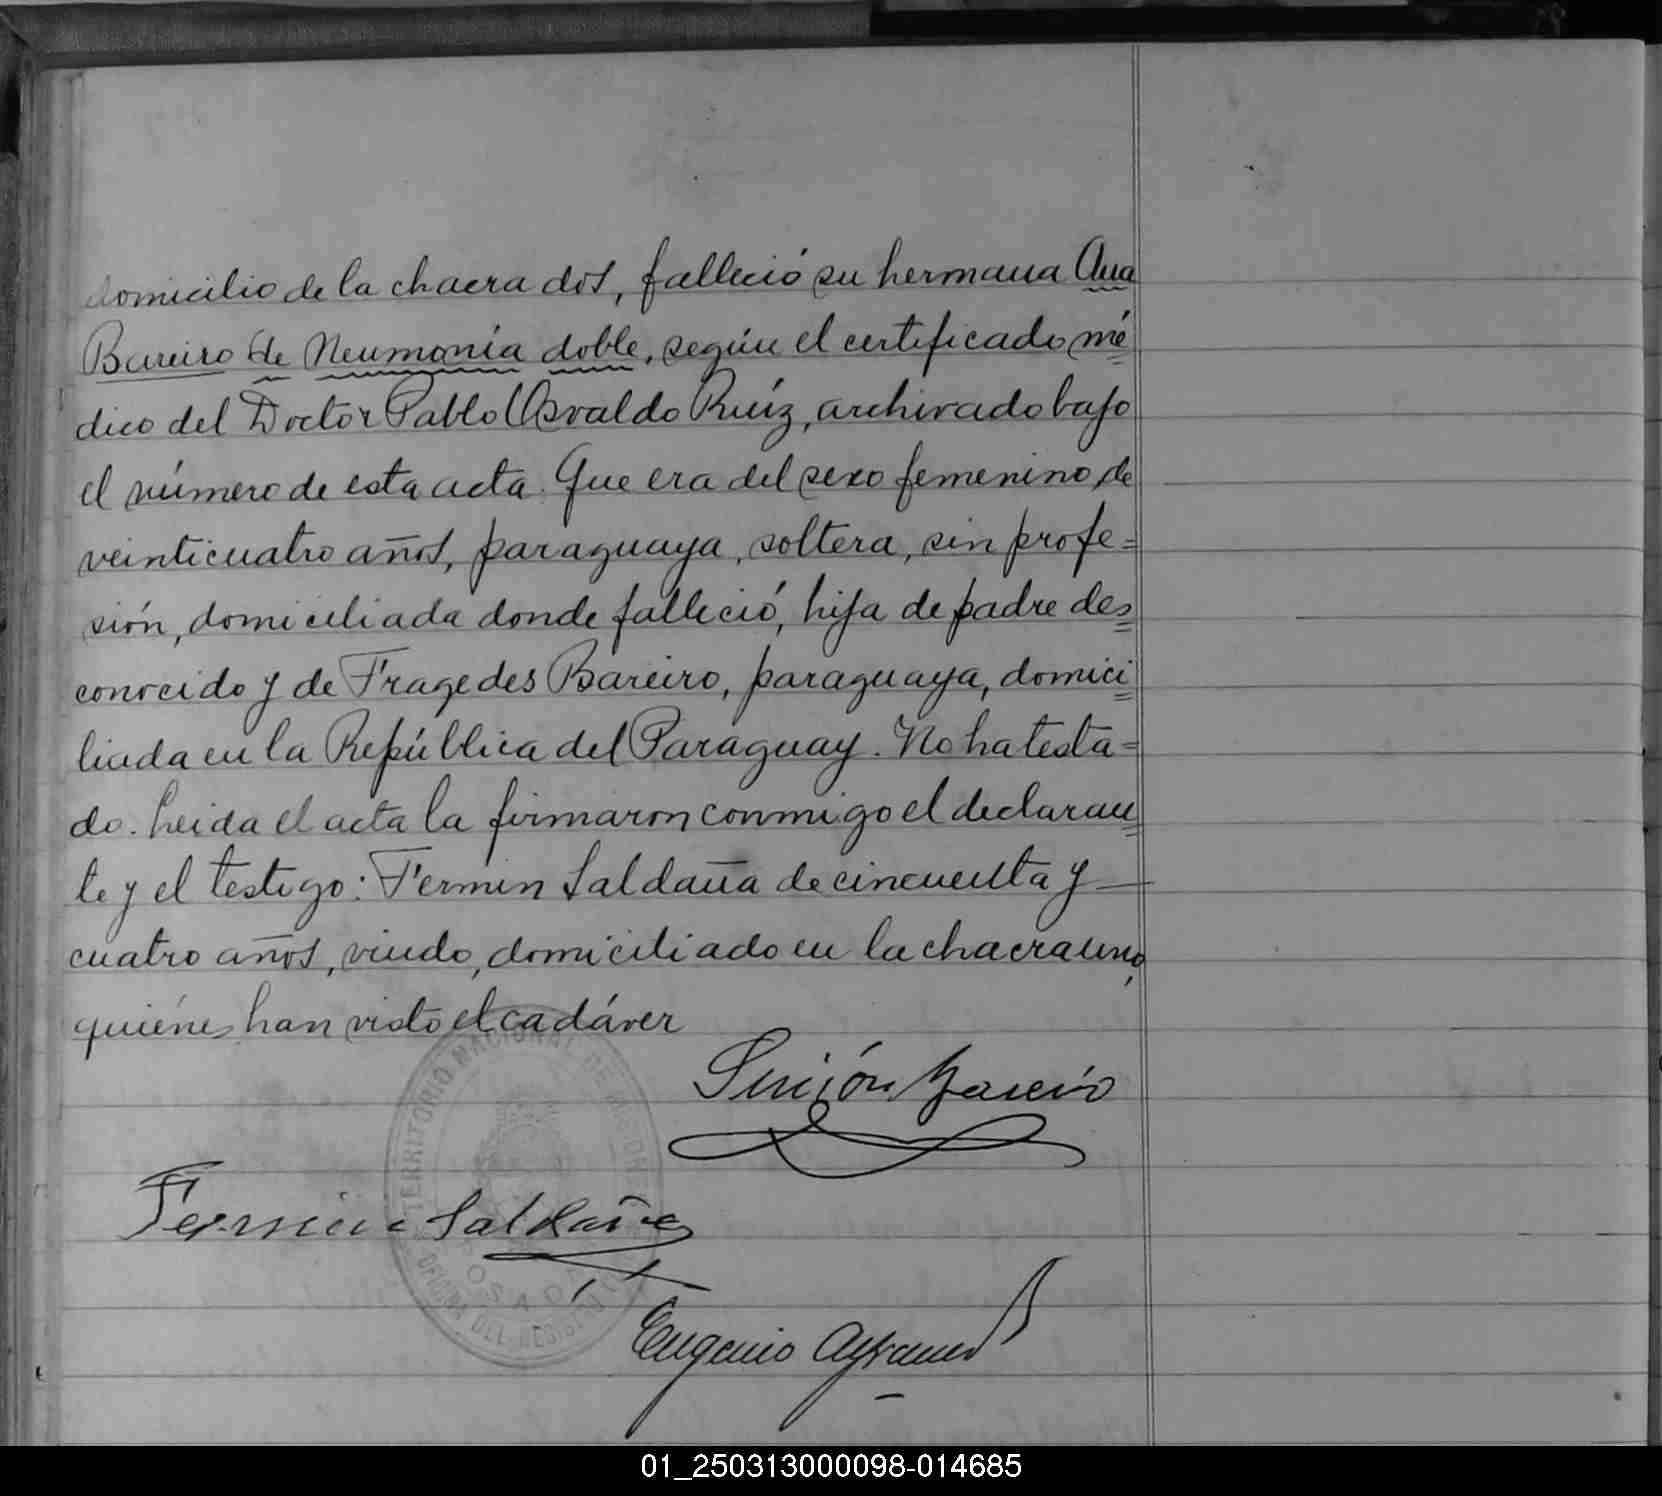 domicilio de la chacra dos, falleció su hermana Ana
Bareiro de Neumonía doble, según el certificado mé
dico del Doctor Pablo Osvaldo Ruíz, archivado bajo
el número de esta acta. Que era del sexo femenino, de
veinticuatro años, paraguaya, soltera, sin profe=
sión, domiciliada donde falleció, hija de padre des=
conocido y de Fragedes Bareiro, paraguaya, domici=
liada en la República del Paraguay. No ha testa=
do. Leida el acta la firmaron conmigo el declaran=
te y el testigo: Fermin Saldaña de cincuenta y
cuatro años, viudo, domiciliado en la chacra uno,
quiénes han visto el cadáver
Bareiro
Fermin Saldaña
TERRITORIO NACIONAL DE MISIONES
OFICINA DEL REGISTRO
POSADAS
Eugenio
01_250313000098-014685